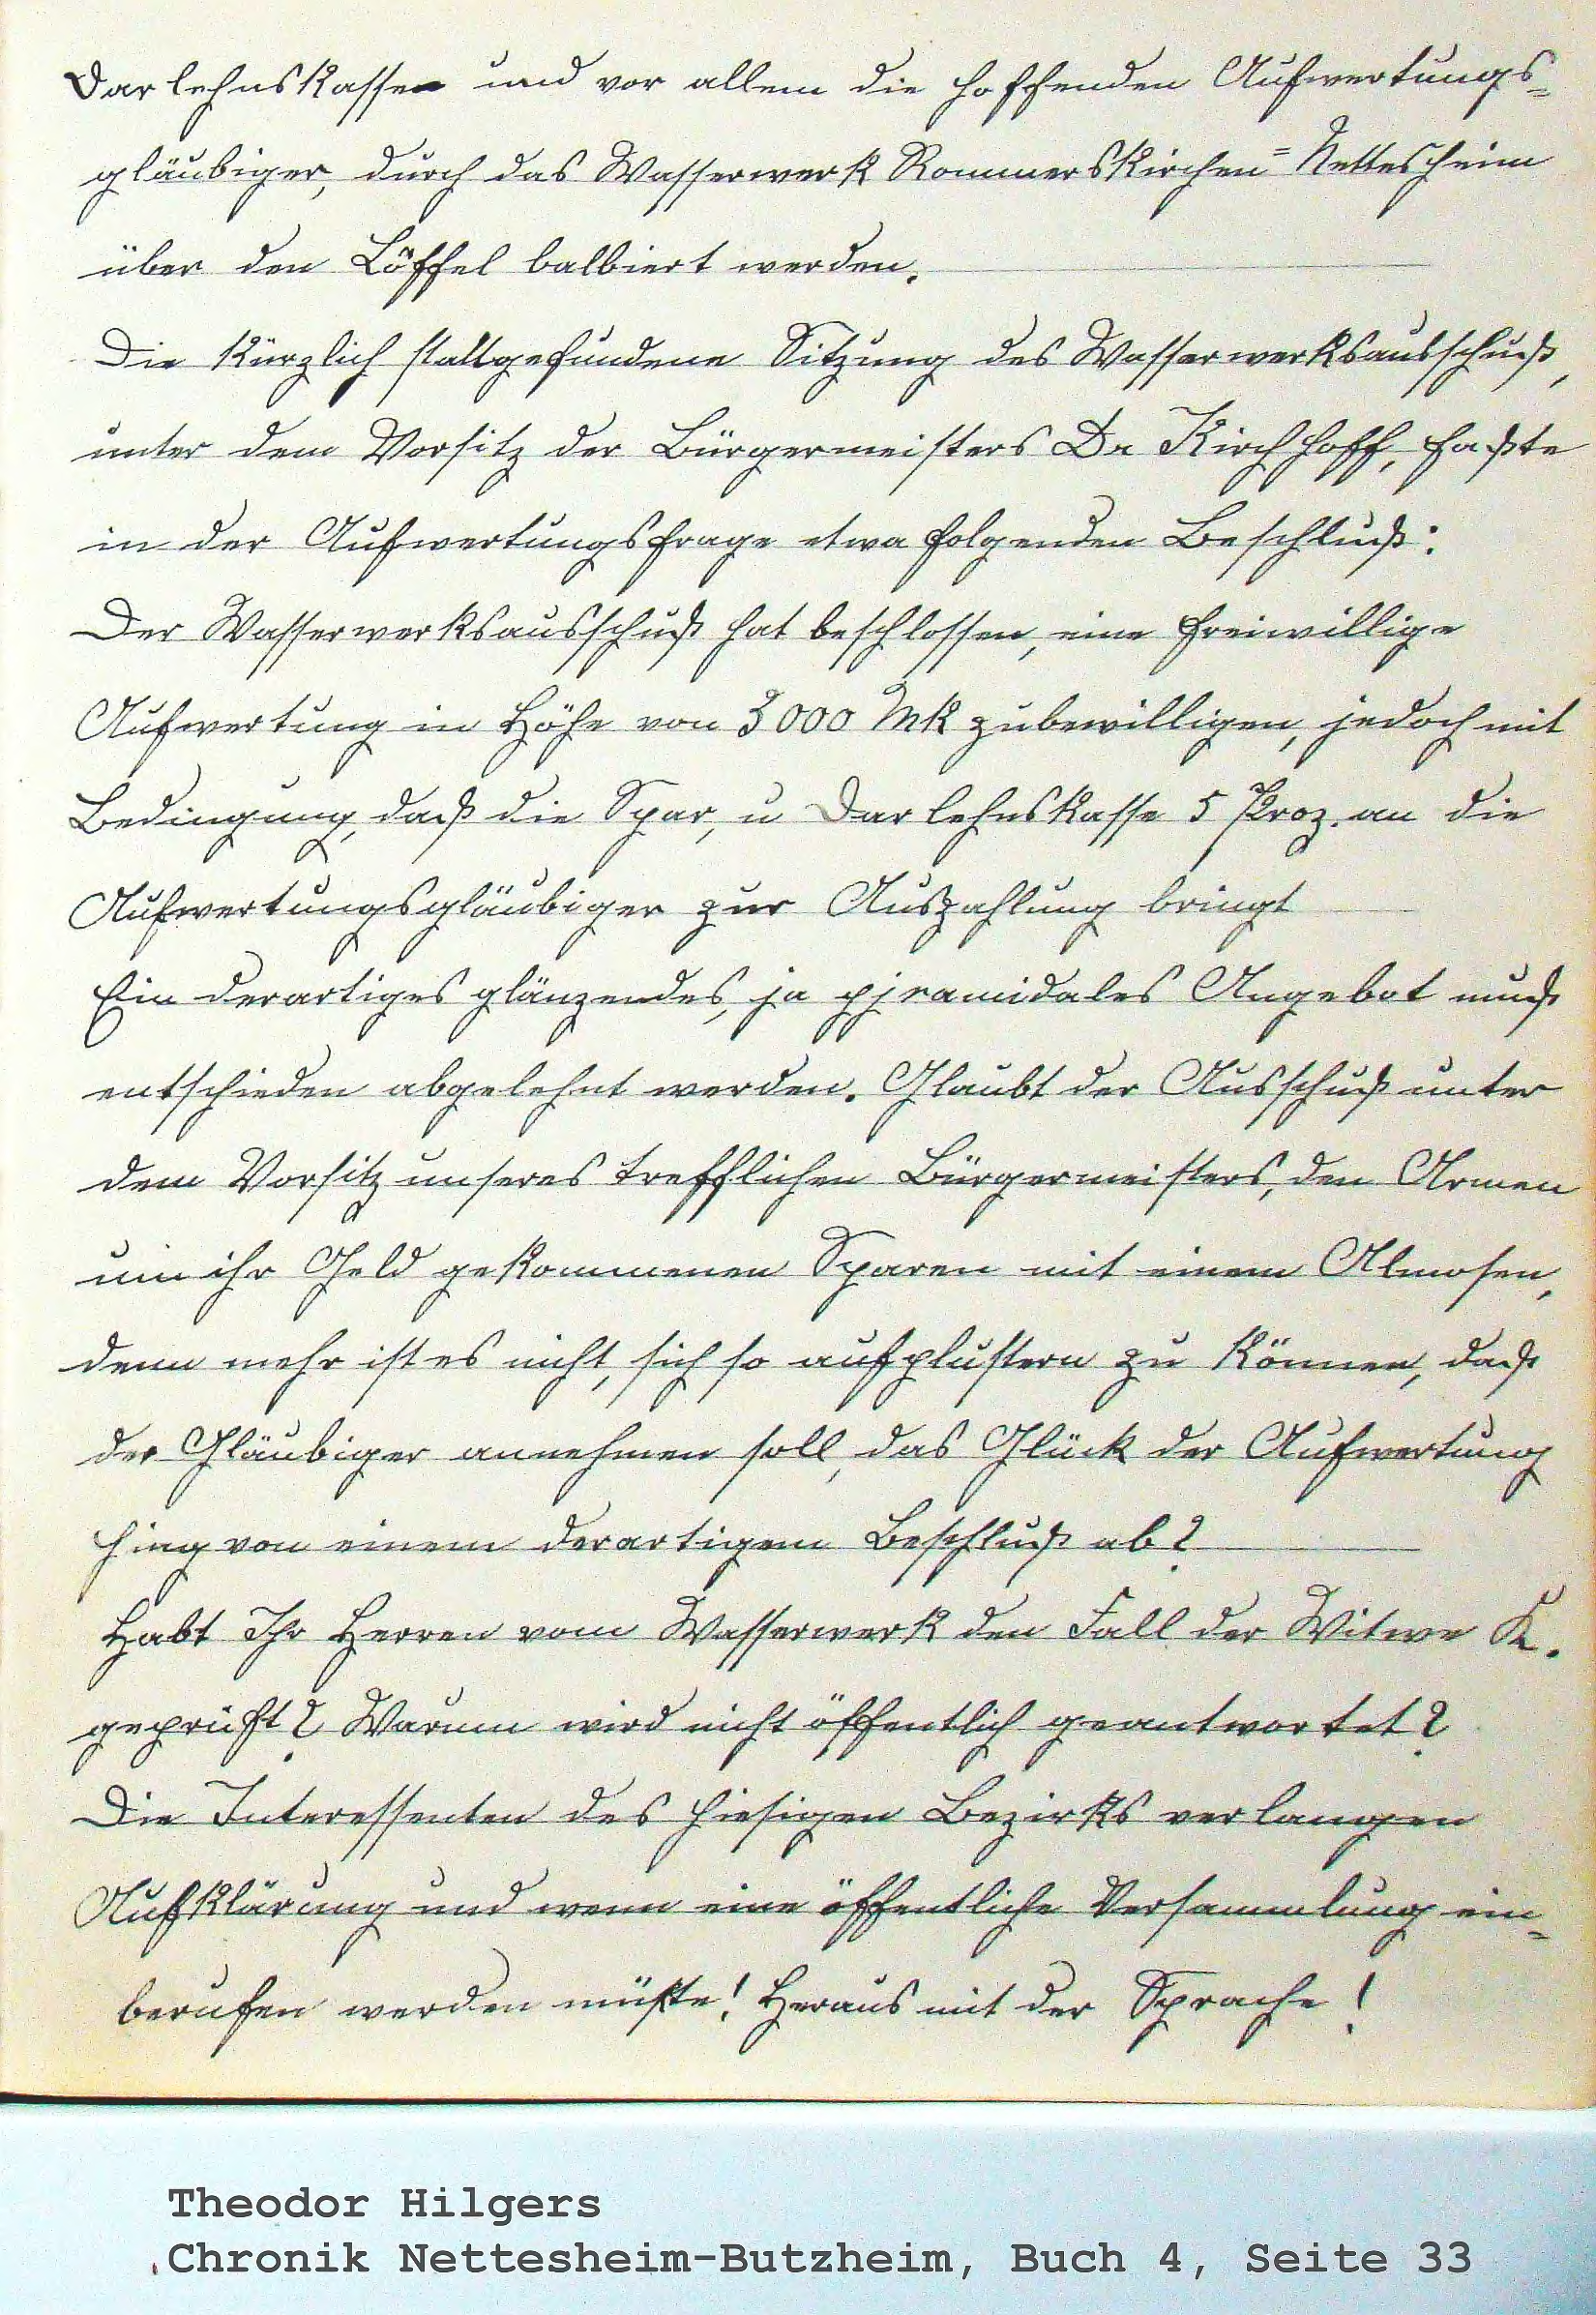 Darlehnskassen und vor allem die hoffenden Aufwertungs=
gläubiger, durch das Wasserwerk Rommerskirchen=Nettesheim
über den Löffel balbiert werden.
Die kürzlich stattgefundene Sitzung des Wasserwerksausschuß,
unter dem Vorsitz der Bürgermeisters Dr Kirchhoff, faßte
in der Aufwertungsfrage etwa folgenden Beschluß:
Der Wasserwerksausschuß hat beschlossen, eine freiwillige
Aufwertung in Höhe von 3000 Mk zubewilligen, jedoch mit
Bedingung, daß die Spar, u Darlehnskasse 5 Proz. an die
Aufwertungsgläubiger zur Auszahlung bringt
Ein derartiges glänzendes, ja pjramidales Angebot muß
entschieden abgelehnt werden. Glaubt der Ausschuß unter
dem Vorsitz unseres trefflichen Bürgermeisters, den Armen
um ihr Geld gekommenen Sparen mit einem Almosen,
denn mehr ist es nicht, sich so aufplustern zu können, daß
der Gläubiger annehmen soll, das Glück der Aufwertung
hing von einem derartigem Beschluß ab?
Habt Ihr Herren vom Wasserwerk den Fall der Witwe K.
geprüft? Warum wird nicht öffentlich geantwortet?
Die Interessenten des hiesigen Bezirks verlangen
Aufklärung und wenn eine öffentliche Versammlung ein=
berufen werden müßte! Heraus mit der Sprache!
Theodor Hilgers
Chronik Nettesheim-Butzheim, Buch 4, Seite 33